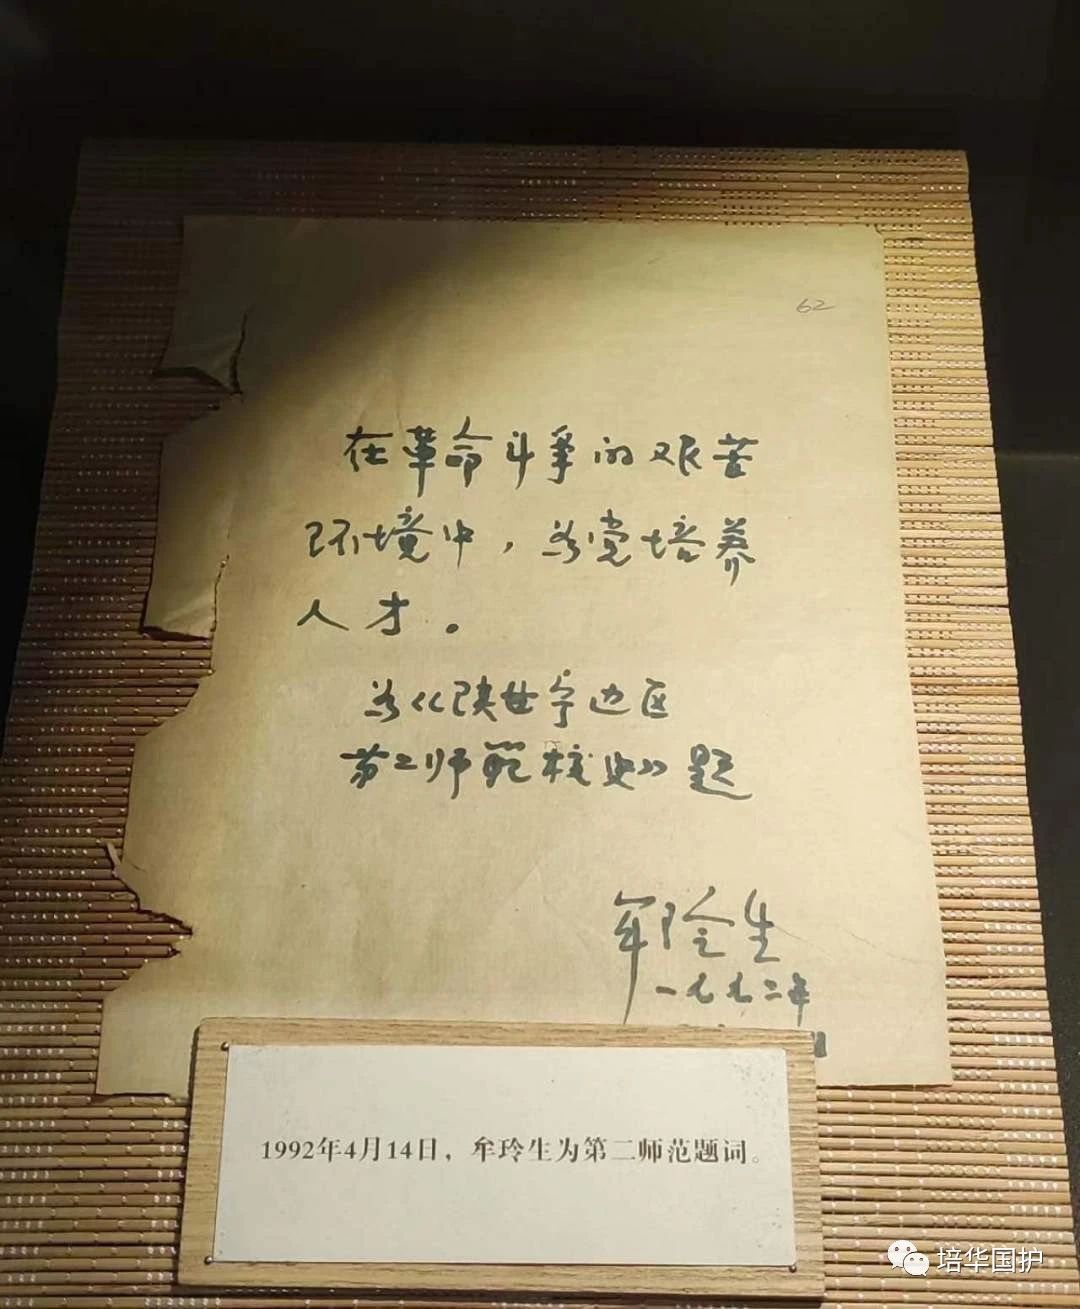 62
在革命斗争的艰苦
环境中，为党培养
人才。
为《陕甘宁边区
第二师范校史》题
牟玲生
一九九二年
1992年4月14日，牟玲生为第二师范题词。
培华国护